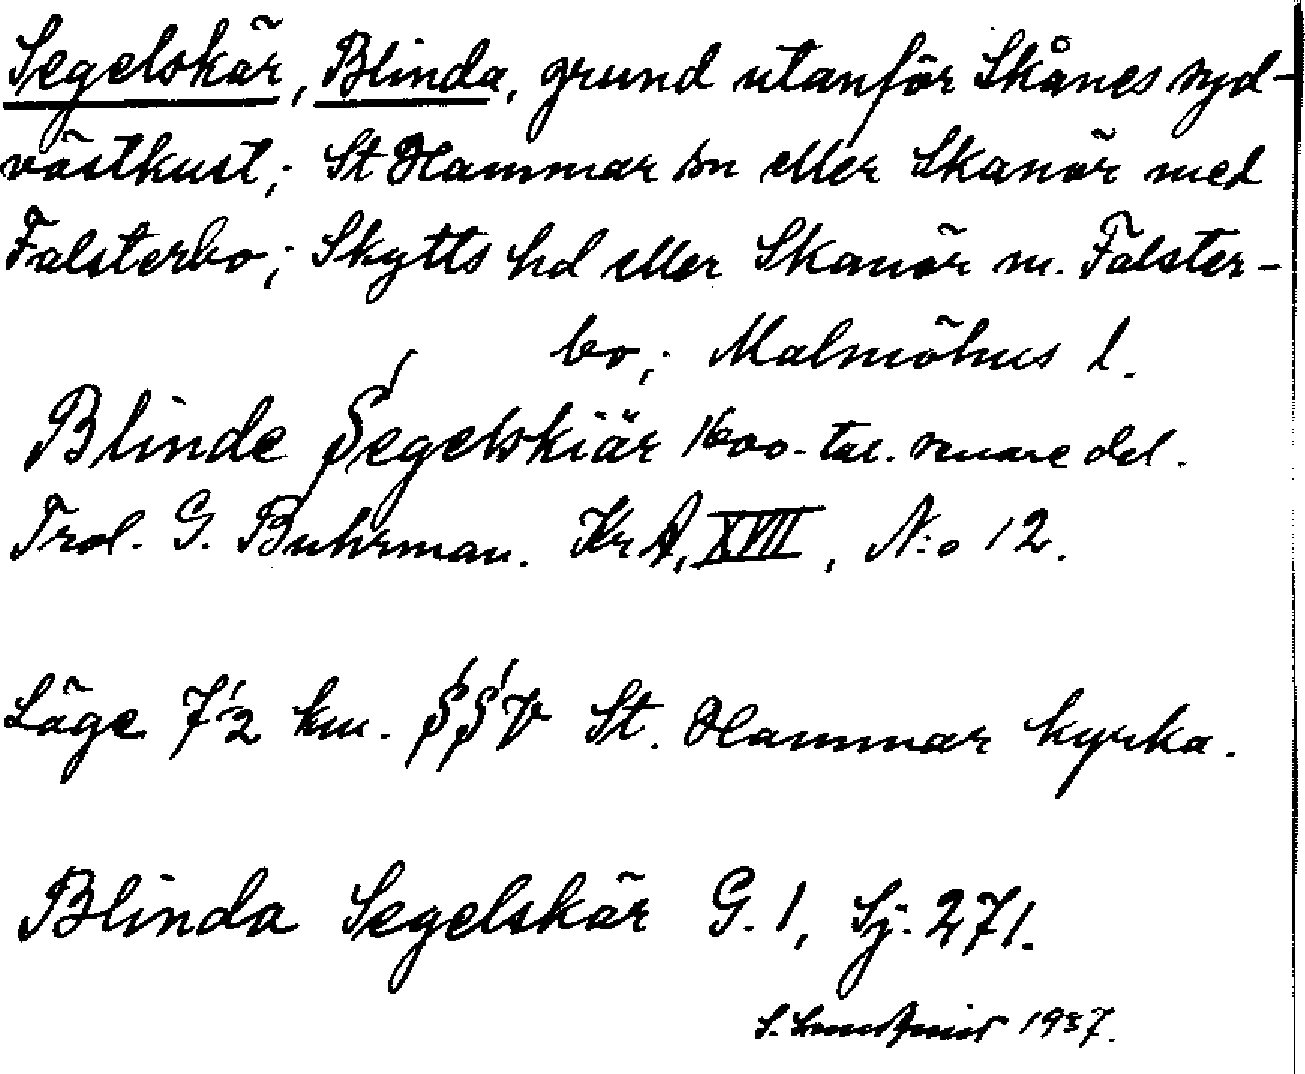 Segelskär, Blinda, grund utanför Skånes syd-
västkust; St Hammar sn eller Skanör med
Falsterbo; Skytts hd eller Skanör m. Falster-
bo; Malmöhus l.
Blinde Segelskiär 1600-tal. senare del.
Trol. G. Buhrman. KrA, XVII, N:o 12.
Läge 7 1/2 km. SSV St. Hammar kyrka.
Blinda Segelskär G. 1, Sj. 271.
S. 1937.